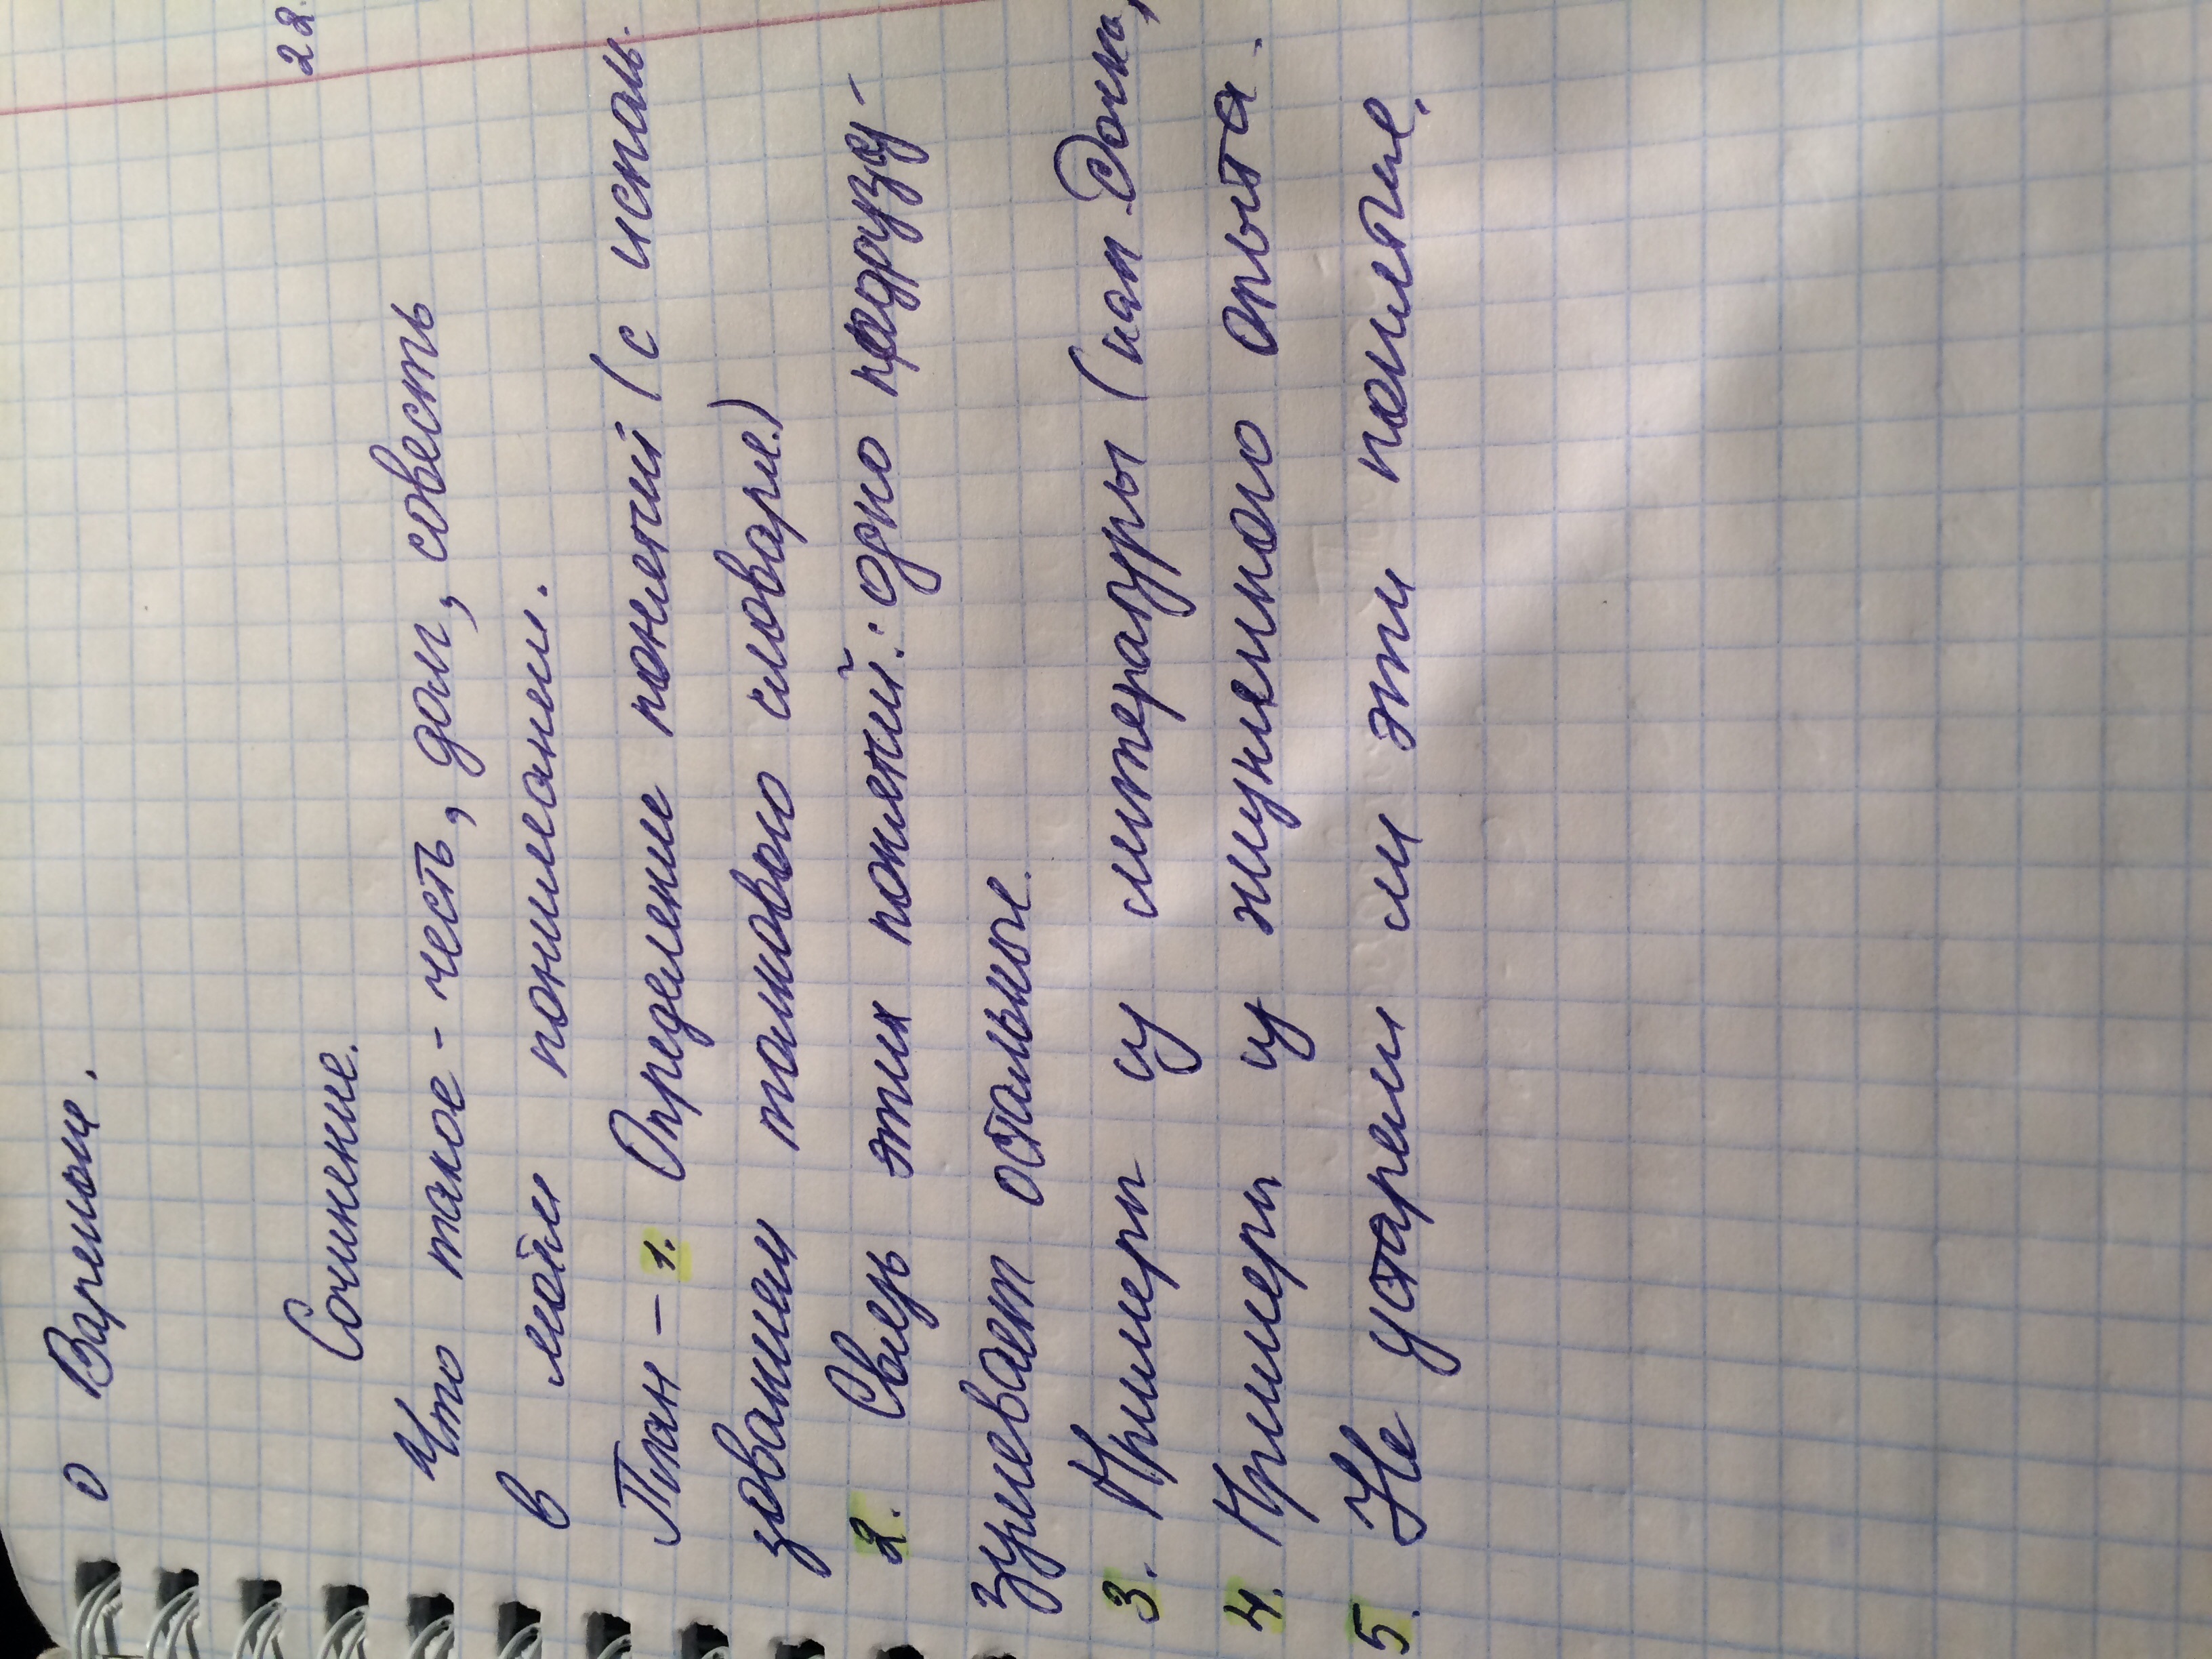 о Вареньке.
22.
Сочинение.
Что такое - честь, долг, совесть
в моём понимании.
План - 1. Определение понятий (с исполь.
зованием толкового словаря)
2. Связь этих понятий: одно подразу-
зумевает остальные.
3. Примеры из литературы (кап. Дочка,
4. Примеры из жизненного опыта.
5. Не устарели ли эти понятие.